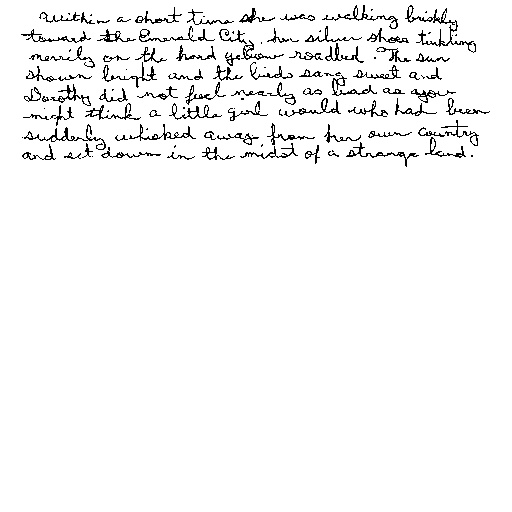 Within a short time she was walking briskly
toward the Emerald City, her silver shoes tinkling
merrily on the hard yellow roadbed. The sun
shown bright and the birds sang sweet and
Dorothy did not feel nearly as bad as you
might think a little girl would who had been
suddenly whisked away from her own country
and set down in the midst of a strange land.